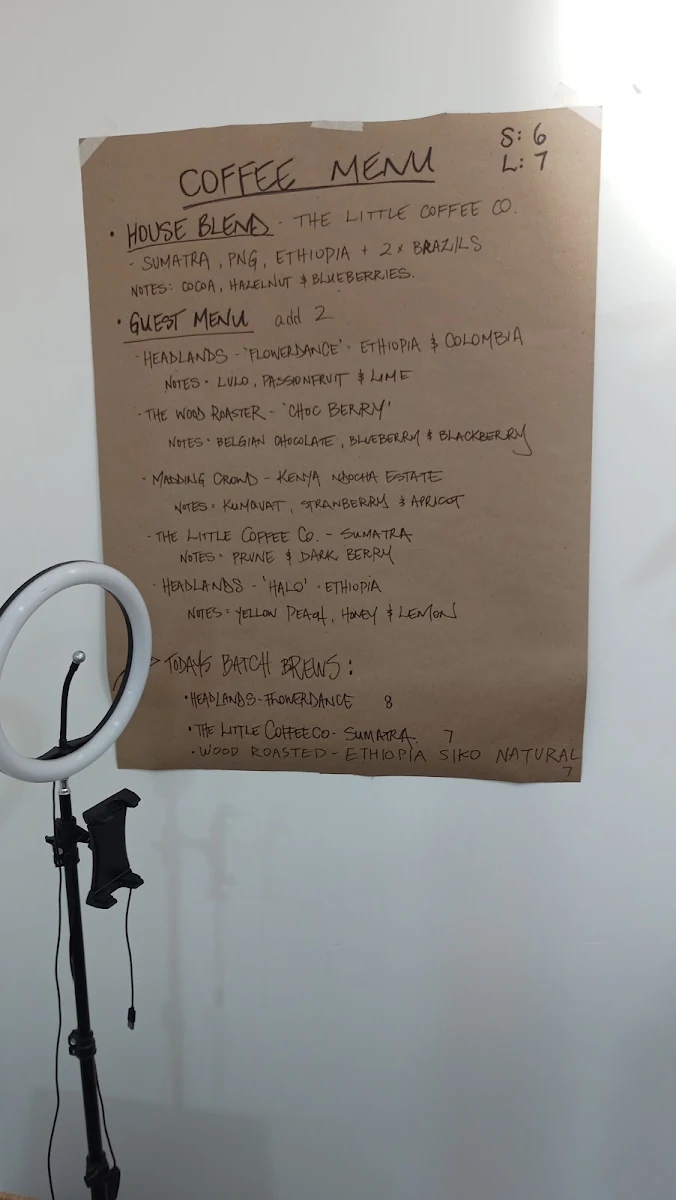 COFFEE MENU
S: 6
L: 7
• HOUSE BLEND - THE LITTLE COFFEE CO.
- SUMATRA, PNG, ETHIOPIA + 2 x BRAZILS
NOTES: COCOA, HAZELNUT & BLUEBERRIES.
• GUEST MENU add 2
- HEADLANDS - 'FLOWERDANCE' - ETHIOPIA & COLOMBIA
NOTES: LULO, PASSIONFRUIT & LIME
- THE WOOD ROASTER - 'CHOC BERRY'
NOTES: BELGIAN CHOCOLATE, BLUEBERRY & BLACKBERRY
- MADDING CROWD - KENYA NDOCHA ESTATE
NOTES: KUMQUAT, STRAWBERRY & APRICOT
- THE LITTLE COFFEE CO. - SUMATRA
NOTES: PRUNE & DARK BERRY
- HEADLANDS - 'HALO' - ETHIOPIA
NOTES: YELLOW PEACH, HONEY & LEMON
> TODAYS BATCH BREWS:
• HEADLANDS - FLOWERDANCE 8
• THE LITTLE COFFEE CO - SUMATRA. 7
• WOOD ROASTED - ETHIOPIA SIKO NATURAL
7